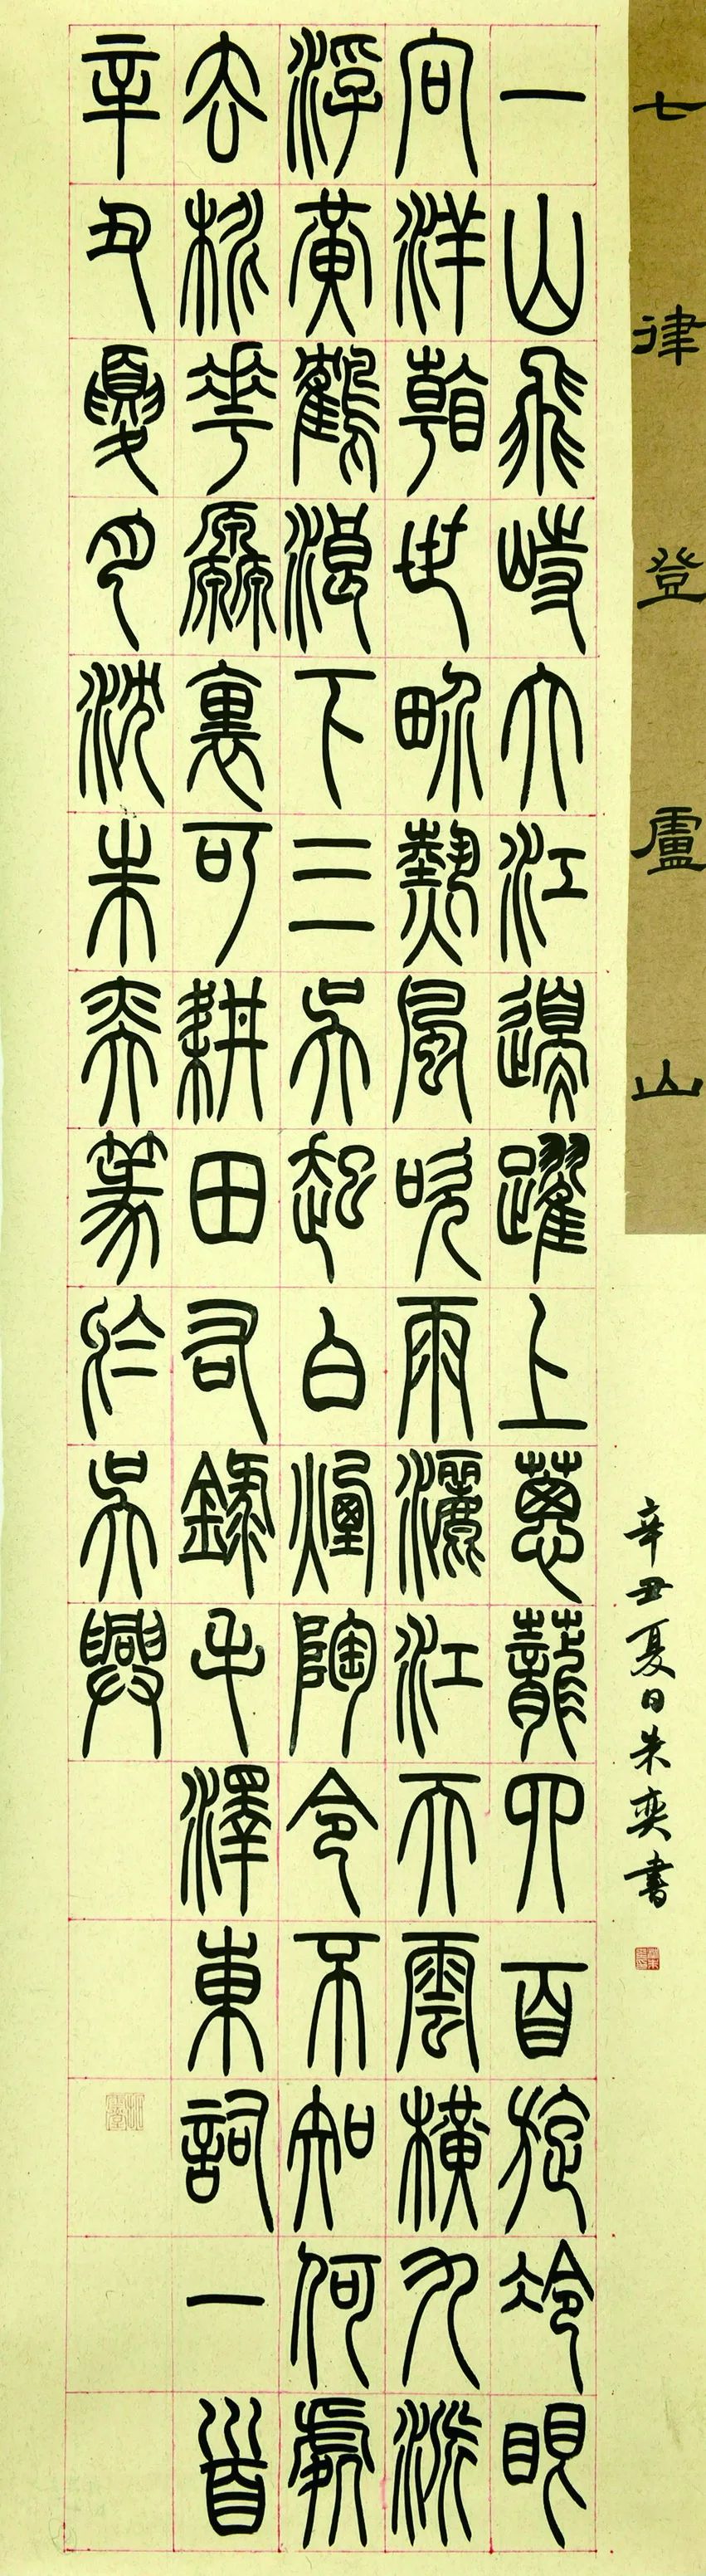 七律登廬山
一山飛峙大江邊躍上蔥蘢四百旋冷眼
向洋看世界熱風吹雨灑江天雲橫九派
浮黃鶴浪下三吳起白煙陶令不知何處
去桃花源裏可耕田右錄毛澤東詞一首
辛丑夏月沈朱奕篆於吳興
辛丑夏日朱奕書